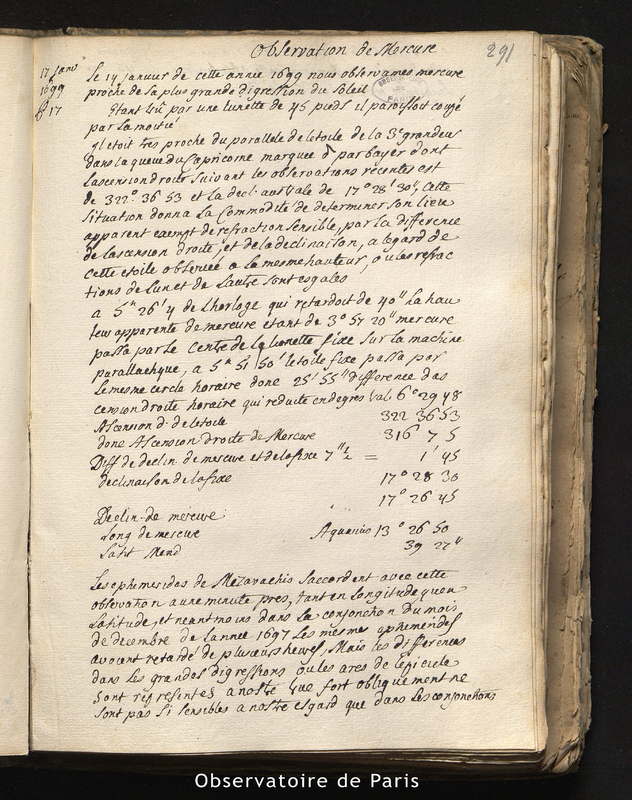 Observation de Mercure
291
17 Janv
1699
♄ 17
Le 17 Janvier de cette annee 1699 nous observames mercure
proche de sa plus grande digression du soleil
Etant vû par une lunette de 45 pieds il paroissoit coupé
par la moitié
Il etoit tres proche du parallele de letoile de la 3e grandeur
dans la queue du Capricorne marquee par bayer dont
lascension droite suivant les observations recentes est
de 322° 36 53 et la decl. australe de 17° 28' 30", Cette
situation donna la Commodité de determiner son lieu
apparent exempt de refraction sensible, par la difference
de lascension droite, et de la declinaison, a legard de
cette etoile observée a la mesme hauteur, ou les refrac
tions de lun et de lautre sont esgales
a 5h 26' 4 de lhorloge qui retardoit de 40" la hau
teur apparente de mercure etant de 3° 57 20" mercure
passa par le Centre de la lunette fixe sur la machine
parallactique, a 5h 51 50' letoile fixe passa par
le mesme cercle horaire donc 25' 55" difference das
cension droite horaire qui reduite en degres vali 6° 29 48
Ascension d. de letoile 322 36 53
donc Ascension droite de Mercure 316 7 5
Diff de declin de mercure et de la fixe 7" ½ = 1' 45
declinaison de la fixe 17° 28 30
17° 26 45
Declin. de mercure
Long de mercure Aquarius 13° 26 50
Latit Merid 39 27"
Les ephemerides de Mezavachis saccordent avec cette
observation a une minute pres, tant en longitude quen
latitude, et neantmoins dans la conjonction du mois
de decembre de lannee 1697 les mesme ephemerides
avoient retardé de plusieurs heures, Mais les differences
dans les grandes digressions ou les arcs de lepicicle
sont representes a nostre vue fort obliquement ne
sont pas si sensibles a nostre esgard que dans les conjonctions
Observatoire de Paris